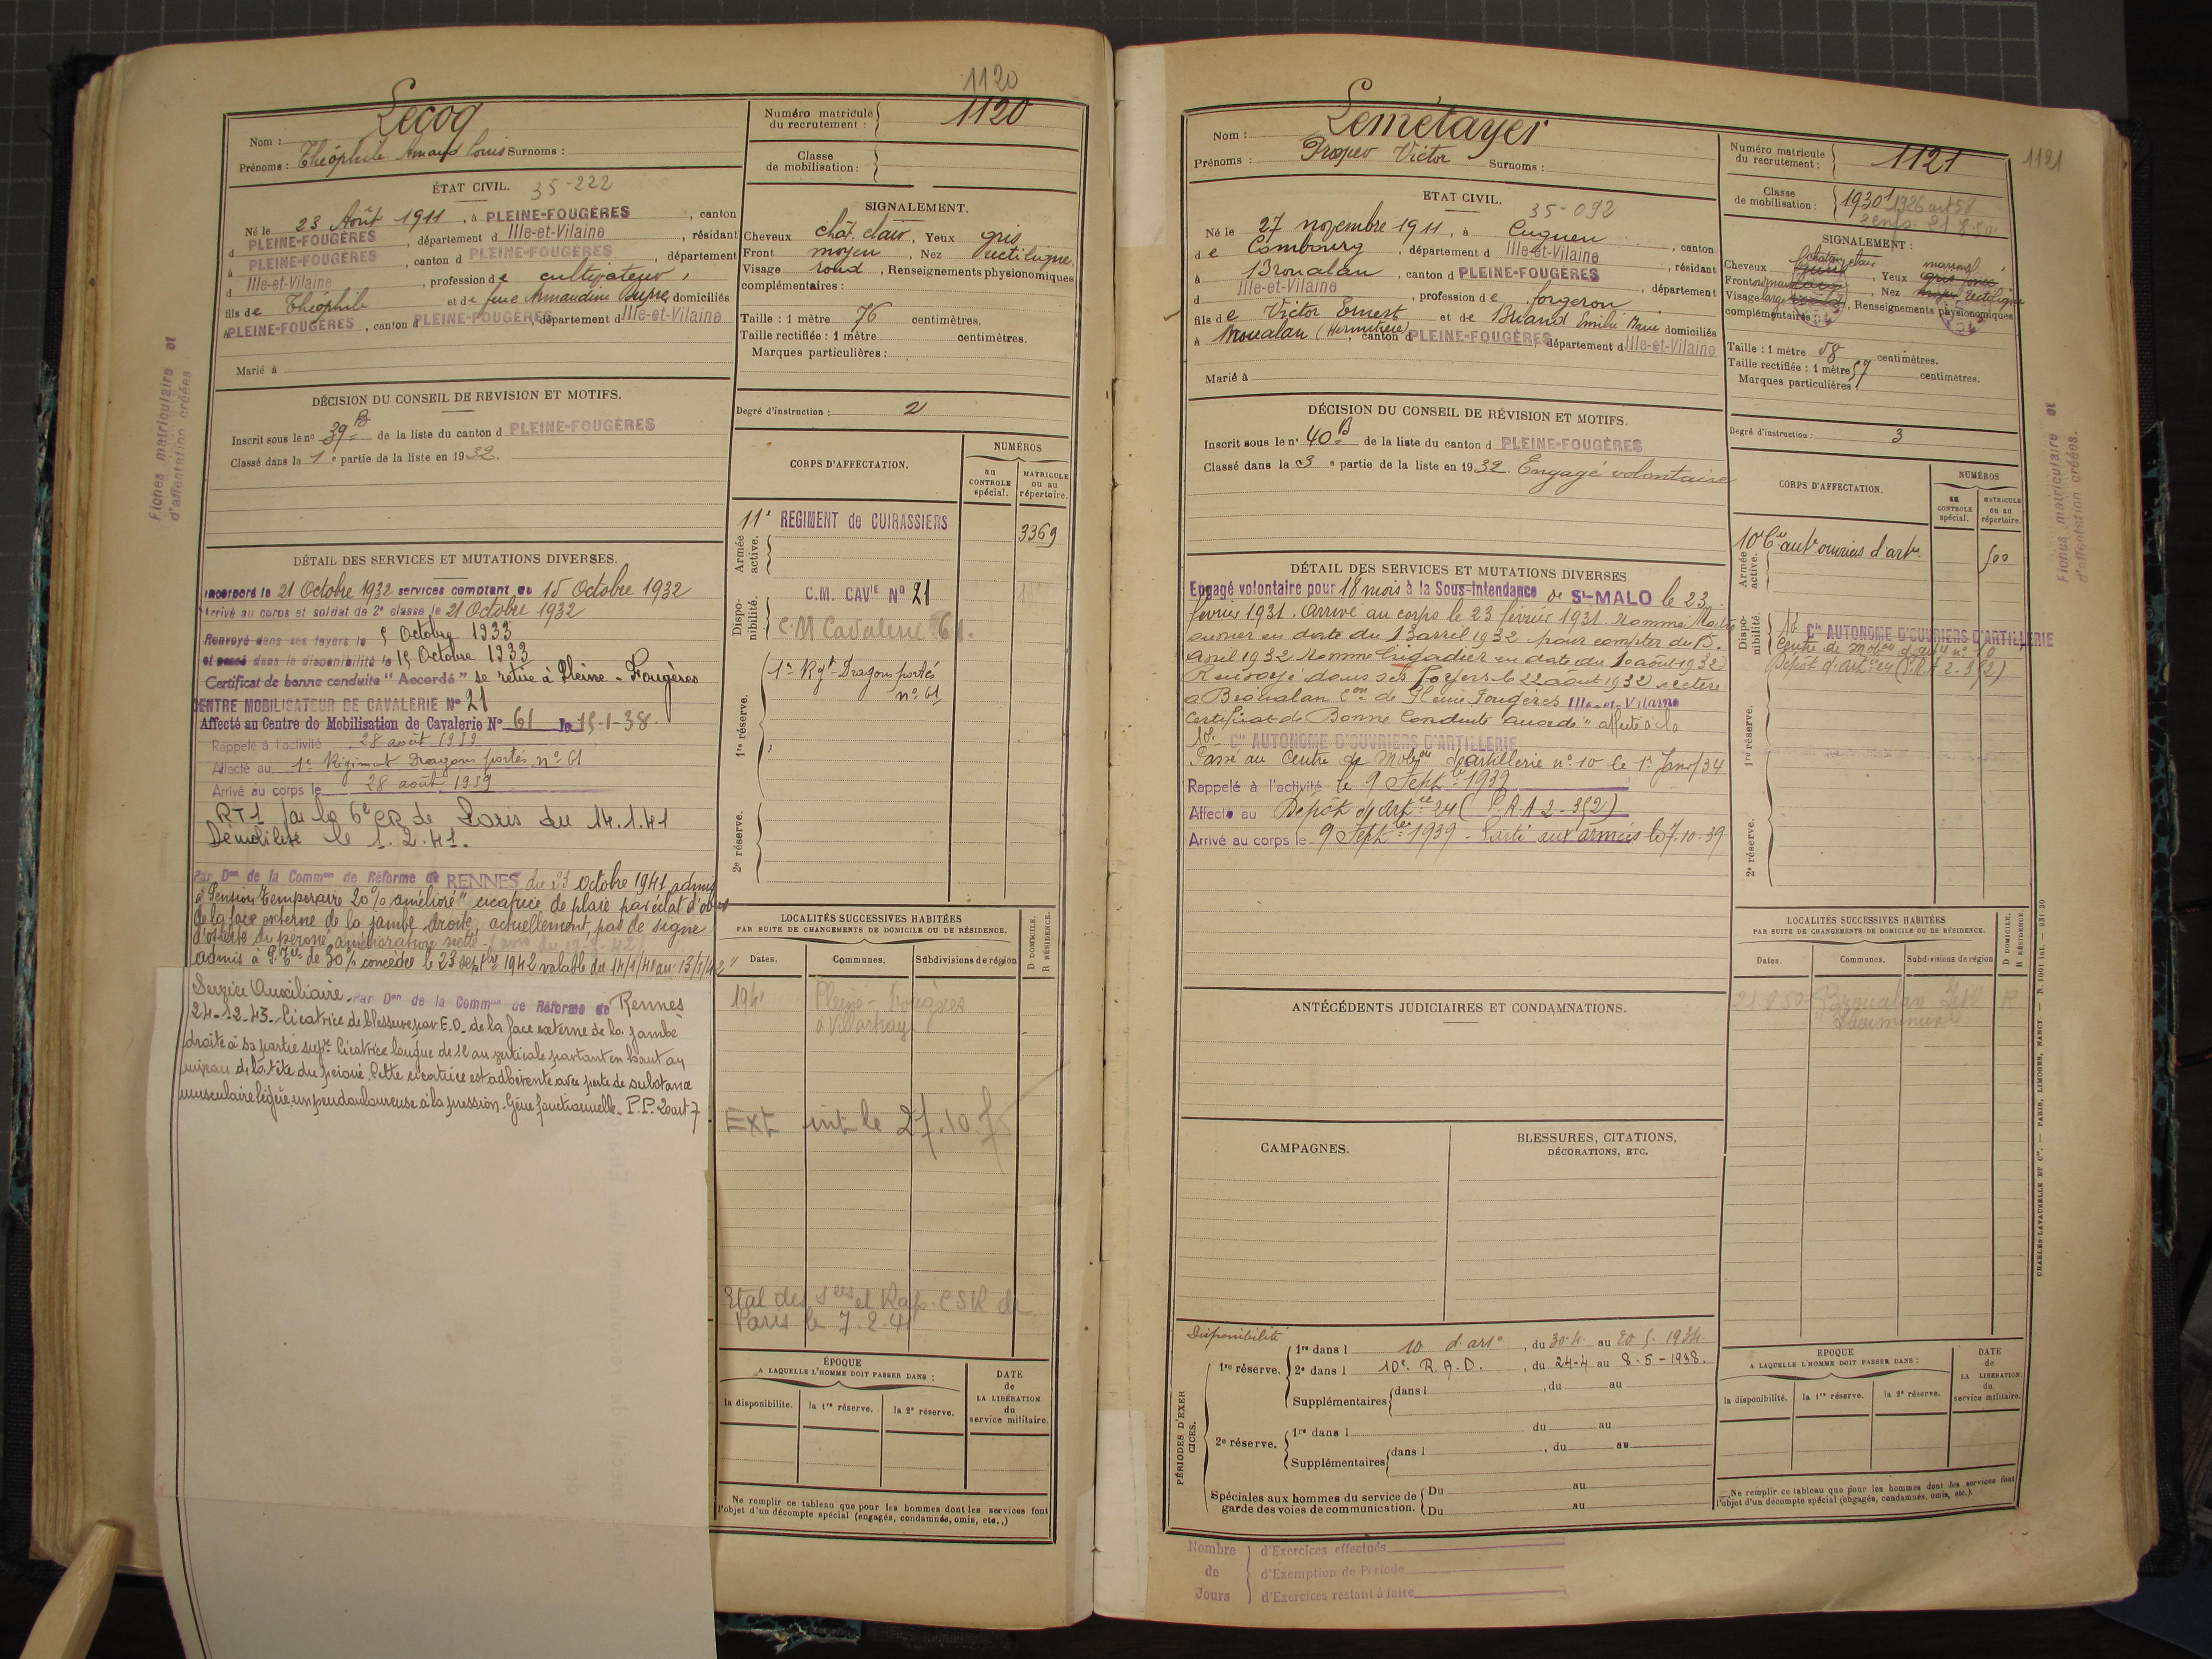 1120
Nom : Lecoq
Prénoms : Théophile Amand Louis Surnoms :
Numéro matricule du recrutement : 1120
Classe de mobilisation :
ÉTAT CIVIL. 35-222
Né le 23 Août 1911, à PLEINE-FOUGÈRES, canton
d PLEINE-FOUGÈRES, département d Ille-et-Vilaine, résidant
à PLEINE-FOUGÈRES, canton d PLEINE-FOUGÈRES, département
d Ille-et-Vilaine, profession de cultivateur,
fils de Théophile et de feue Armandine, domiciliés
à PLEINE-FOUGÈRES, canton d PLEINE-FOUGÈRES, département d Ille-et-Vilaine
Marié à
SIGNALEMENT.
Cheveux chât. clair, Yeux gris
Front moyen, Nez rectiligne
Visage rond, Renseignements physionomiques
complémentaires :
Taille : 1 mètre 76 centimètres.
Taille rectifiée : 1 mètre centimètres.
Marques particulières :
DÉCISION DU CONSEIL DE REVISION ET MOTIFS.
Inscrit sous le n° 39 B de la liste du canton d PLEINE-FOUGÈRES
Classé dans la 1e partie de la liste en 1932.
Degré d'instruction : 2
CORPS D'AFFECTATION.
NUMÉROS
au CONTROLE spécial.
MATRICULE ou au répertoire.
Armée active.
11e REGIMENT de CUIRASSIERS 3369
Disponibilité.
C.M. CAVIE N° 21
C.M Cavalerie 61.
1re réserve.
1er Rgt Dragons portés
n° 61
2e réserve.
Fiches matriculaire et
d'affectation créées
DÉTAIL DES SERVICES ET MUTATIONS DIVERSES.
Incorporé le 21 Octobre 1932 services comptant du 15 Octobre 1932
Arrivé au corps et soldat de 2e classe le 21 Octobre 1932
Renvoyé dans ses foyers le 5 Octobre 1933
et passé dans la disponibilité le 15 Octobre 1933
Certificat de bonne conduite "Accordé" se retire à Pleine-Fougères
CENTRE MOBILISATEUR DE CAVALERIE N° 21
Affecté au Centre de Mobilisation de Cavalerie N° 61 le 15-1-38.
Rappelé à l'activité 28 août 1939
Affecté au 1er Régiment Dragons portés n° 61
Arrivé au corps le 28 août 1939
RT1 par la 6e CR de Paris du 14.1.41
Démobilisé le 1.2.41.
Par Don de la Common de Réforme de RENNES du 23 octobre 1941 admis
à Pension temporaire 20% amélioré "cicatrice de plaie par éclat d'obus
de la face externe de la jambe droite, actuellement, pas de signe
d'ostéite du péroné, amélioration nette -
admis à P. Tre de 30% concédée le 23 sept bre 1942 valable du 14/1/41 au 13/1/42"
Service Auxiliaire. Par Don de la Common de Réforme de Rennes
24-12-43. Cicatrice de blessure par E.O. de la face externe de la jambe
droite à sa partie supre Cicatrice longue de 12 cm verticale partant en haut au
niveau de la tête du péroné. Cette cicatrice est adhérente avec perte de substance
musculaire légère, un peu douloureuse à la pression. Gêne fonctionnelle. P.P. 20 art 7
LOCALITÉS SUCCESSIVES HABITÉES
PAR SUITE DE CHANGEMENTS DE DOMICILE OU DE RÉSIDENCE.
D DOMICILE. R RÉSIDENCE.
Dates. Communes. Subdivisions de région
1941 Pleine-Fougères
Ext mit le
Etat des Sces et Rap. CSR de
Paris le 7.2.41
ÉPOQUE
A LAQUELLE L'HOMME DOIT PASSER DANS :
la disponibilité. la 1re réserve. la 2e réserve.
DATE de LA LIBÉRATION du service militaire.
Ne remplir ce tableau que pour les hommes dont les services font
l'objet d'un décompte spécial (engagés, condamnés, omis, etc.,)
1121
Nom : Lemétayer
Prénoms : Prosper Victor Surnoms :
Numéro matricule du recrutement : 1121
Classe de mobilisation : 1930 1926 art 58
2 enfts 21.8.50
ETAT CIVIL. 35-092
Né le 27 novembre 1911, à Cuguen, canton
de Combourg, département d Ille-et-Vilaine, résidant
à Broualan, canton d PLEINE-FOUGÈRES, département
d Ille-et-Vilaine, profession de forgeron
fils de Victor Ernest et de Briand Emilie Marie domiciliés
à Broualan, canton d PLEINE-FOUGÈRES, département d Ille-et-Vilaine
Marié à
SIGNALEMENT :
Cheveux châtain clair, Yeux marrons
Front, Nez rectiligne
Visage large, Renseignements physionomiques
complémentaires
Taille : 1 mètre 58 centimètres.
Taille rectifiée : 1 mètre 57 centimètres.
Marques particulières :
DÉCISION DU CONSEIL DE RÉVISION ET MOTIFS.
Inscrit sous le n° 40 B de la liste du canton d PLEINE-FOUGÈRES
Classé dans la 3e partie de la liste en 1932. Engagé volontaire
Degré d'instruction : 3
CORPS D'AFFECTATION.
NUMÉROS
au CONTROLE spécial.
MATRICULE ou au répertoire.
Armée active.
10e Cie aut ouvriers d'art 500
Disponibilité.
10e Cie AUTONOME D'OUVRIERS D'ARTILLERIE
Centre de Mobon d'artie n° 10
Dépôt d'artie 24
1re réserve.
2e réserve.
Fiches matriculaire et
d'affectation créées.
DÉTAIL DES SERVICES ET MUTATIONS DIVERSES
Engagé volontaire pour 18 mois à la Sous-Intendance de St-MALO le 23
février 1931. Arrivé au corps le 23 février 1931. Nommé Maître
ouvrier en date du 13 avril 1932 pour compter du 15
avril 1932 Nommé brigadier en date du 10 août 1932
Renvoyé dans ses foyers le 22 août 1932 se retire
à Broualan Con de Pleine Fougères Ille-et-Vilaine
Certificat de Bonne Conduite "accordé" affecté à la
10e Cie AUTONOME D'OUVRIERS D'ARTILLERIE
Passé au Centre de Mobon d'artillerie n° 10 le 1er Janv/34
Rappelé à l'activité le 9 Septbre 1939
Affecté au Dépôt d'Artie 24
Arrivé au corps le 9 Septbre 1939 - Parti aux armées le 7.10.39
ANTÉCÉDENTS JUDICIAIRES ET CONDAMNATIONS.
CAMPAGNES.
BLESSURES, CITATIONS,
DÉCORATIONS, ETC.
LOCALITÉS SUCCESSIVES HABITÉES
PAR SUITE DE CHANGEMENTS DE DOMICILE OU DE RÉSIDENCE.
D DOMICILE. R RÉSIDENCE.
Dates. Communes. Subdivisions de région
21.8.50 Broualan I&V R
PÉRIODES D'EXERCICES.
Disponibilité
1re réserve.
1re dans l 10 d'artie, du 30.4. au 20.5.1934
2e dans l 10e R.A.D., du 24-4 au 8-5-1938.
Supplémentaires dans l, du au
2e réserve.
1re dans l du au
Supplémentaires dans l, du au
Spéciales aux hommes du service de garde des voies de communication.
Du au
Du au
EPOQUE
A LAQUELLE L'HOMME DOIT PASSER DANS :
la disponibilité. la 1re réserve. la 2e réserve.
DATE de LA LIBÉRATION du service militaire.
Ne remplir ce tableau que pour les hommes dont les services font
l'objet d'un décompte spécial (engagés, condamnés, omis, etc.).
Nombre de Jours
d'Exercices effectués
d'Exemption de Période
d'Exercices restant à faire
CHARLES-LAVAUZELLE ET Cie. — PARIS, LIMOGES, NANCY. — N. 1001 int. — 531-30